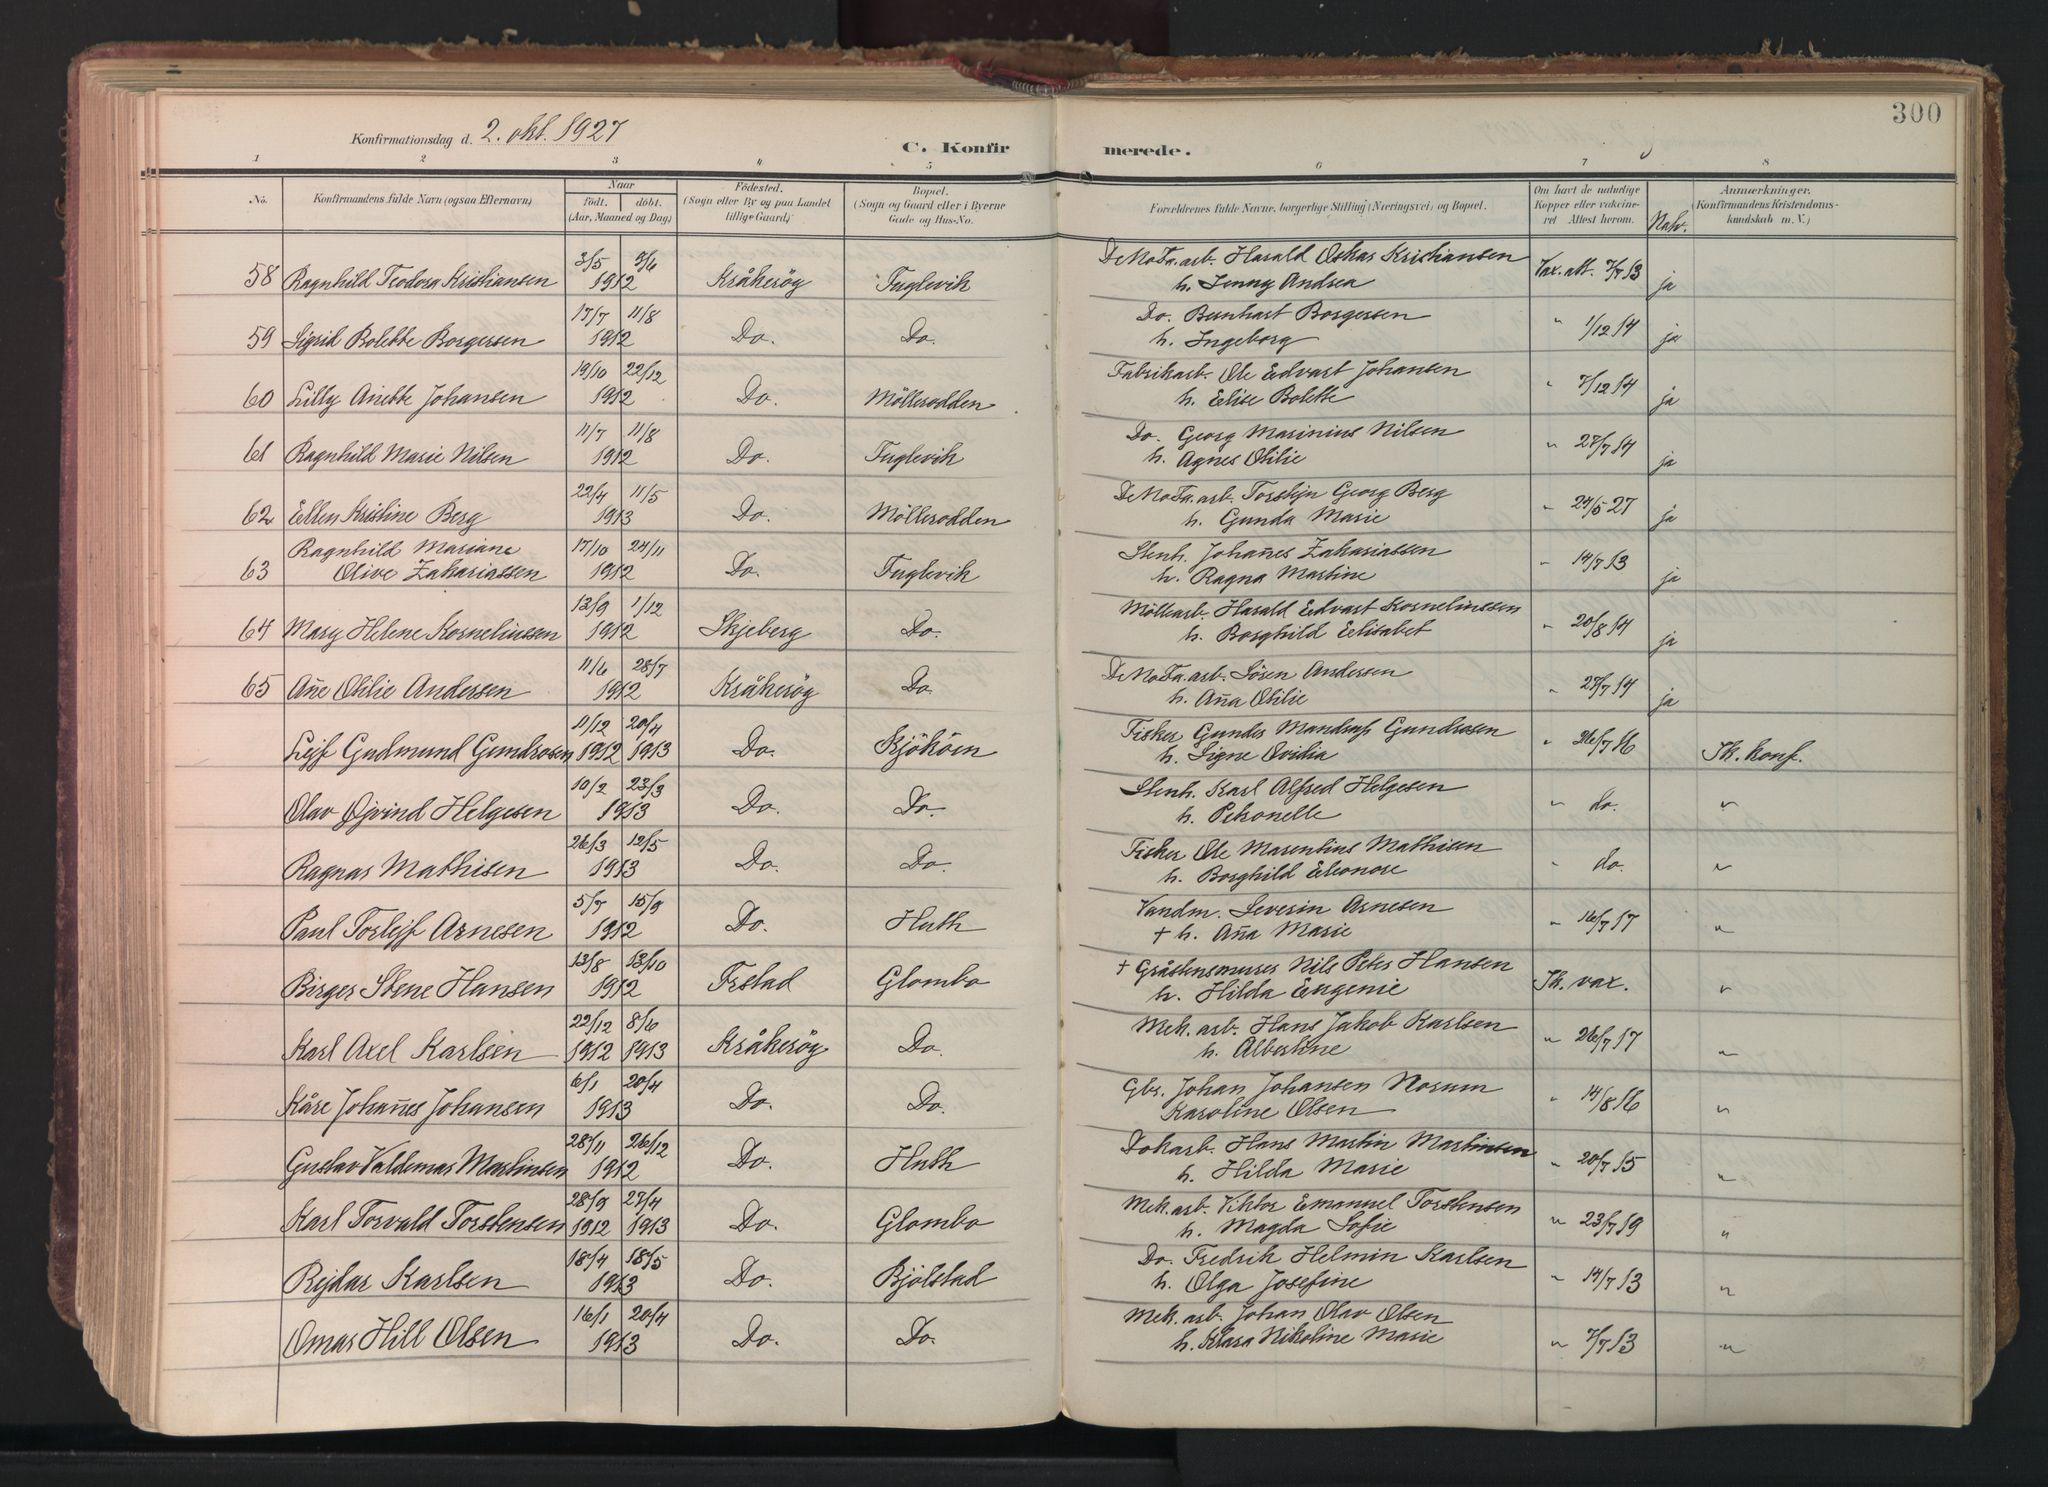 300
Konfirmationsdag d. 2. okt. 1927
C. Konfirmerede.
1 2 3 4 5 6 7 8
No. Konfirmandens fulde Navn (ogsaa Efternavn) Naar født. døbt. (Aar, Maaned og Dag) Födested. (Sogn eller By og paa Landet tillige Gaard) Bopæl. (Sogn og Gaard eller i Byerne Gade og Hus-No. Forældrenes fulde Navne, borgerlige Stilling (Næringsvei) og Bopæl. Om havt de naturlige Kopper eller vakcineret Attest herom. Natv. Anmærkninger. (Konfirmandens Kristendomskundskab m. V.)
3/5 9/6 DeNoFa.arb. Harald Oskar Kristiansen
58 Ragnhild Teodora Kristiansen 1912 Kråkeröy Fuglevik h. Jenny Andrea Vax. att. 7/7 13 ja
17/7 11/8 Do. Bernhart Borgersen
59 Sigrid Bolette Borgersen 1912 Do. Do. h. Ingeborg " 1/12 14 ja
19/10 22/12 Fabrikarb. Ole Edvart Johansen
60 Lilly Anette Johansen 1912 Do. Möllerodden h. Elise Bolette " 7/12 14 ja
11/7 11/8 Do. Georg Marinius Nilsen
61 Ragnhild Marie Nilsen 1912 Do. Fuglevik h. Agnes Otilie " 27/7 14 ja
22/4 11/5 DeNoFa.arb. Torstejn Georg Berg
62 Ellen Kristine Berg 1913 Do. Möllerodden h. Gunda Marie " 24/5 27 ja
Ragnhild Mariane 17/10 24/11 Stenh. Johan̄es Zakariassen
63 Olive Zakariassen 1912 Do. Fuglevik h. Ragna Martine " 14/7 13 ja
13/9 1/12 Möllearb. Harald Edvart Korneliussen
64 Mary Helene Korneliussen 1912 Skjeberg Do. h. Borghild Elisabet " 20/8 14 ja
11/6 28/7 DeNoFa.arb. Sören Andersen
65 An̄e Otilie Andersen 1912 Kråkeröy Do. h. An̄a Otilie " 27/7 14 ja
11/12 20/4 Fisker Gunder Mandrup Gundrosen
Lejf Gudmund Gundrosen 1912 1913 Do. Kjököen h. Signe Ovidia " 26/7 16 Tk. konf.
10/2 23/3 Stenh. Karl Alfred Helgesen
Olav Öjvind Helgesen 1913 Do. Do. h. Petronelle " do. "
26/3 12/5 Fisker Ole Marentius Mathisen
Ragnar Mathisen 1913 Do. Do. h. Borghild Eleonore " do. "
5/7 15/9 Vandm. Severin Arnesen
Paul Torlejf Arnesen 1912 Do. Huth + h. An̄a Marie " 16/7 17 "
13/8 13/10 + Gråstensmurer Nils Peter Hansen
Birger Stene Hansen 1912 Frstad Glombo h. Hilda Eugenie Tk. vax. "
22/12 8/6 Mek. arb. Hans Jakob Karlsen
Karl Axel Karlsen 1912 1913 Kråkeröy Do. h. Albertine " 26/7 17 "
6/1 20/4 Gbr. Johan Johansen Norum
Kåre Johan̄es Johansen 1913 Do. Do. Karoline Olsen " 14/8 16 "
28/11 26/12 Dokarb. Hans Martin Martinsen
Gustav Valdemar Martinsen 1912 Do. Huth h. Hilda Marie " 20/7 15 "
28/9 27/4 Mek. arb. Viktor Emanuel Torstensen
Karl Torvald Torstensen 1912 1913 Do. Glombo h. Magda Sofie " 23/7 19 "
18/4 18/5 Do. Fredrik Helmin Karlsen
Rejdar Karlsen 1913 Do. Bjölstad h. Olga Josefine " 14/7 13 "
16/1 20/4 Mek. arb. Johan Olav Olsen
Omar Hill Olsen 1913 Do. Do. h. Klara Nikoline Marie " 7/7 13 "